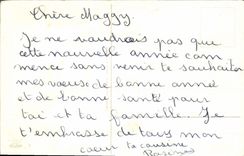 Chère Maggy
Je ne voudrais pas que
cette nouvelle année com
mence sans venir te souhaiter
mes voeux de bonne anné
et de bonne santé pour
toi et ta famille. Je
t'embrasse de tous mon
coeur ta cousine